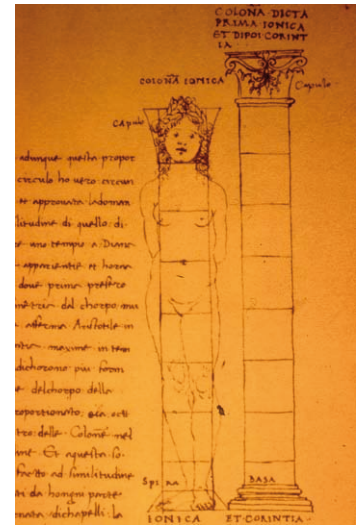 COLOÑA DICTA
PRIMA IONICA
ET DIPOI CORINT
IA
COLOÑA IONICA
CApulo
Capulo
adunque questa propor
circulo ho vero circun
et approvata
litudine di quello di
uno tempio a Diane
apparientie et
dove prima
metria dal chorpo mu
afferma Aristotile in
maxime in tem
dichorono piu form
e delchorpo della
roportionato,
tro delle Colone nel
me Et aquesta so
facto ad similitudine
ti da homgni parte
dichapelli la
SpIRA
BASA
IONICA
ET CORINTIA